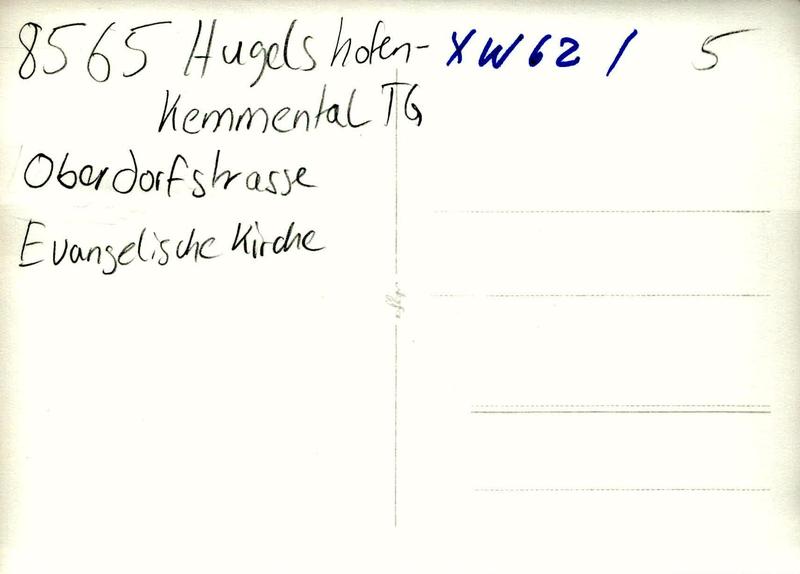 8565 Hugelshofen- XW62 / 5
Kemmental TG
Oberdorfstrasse
Evangelische Kirche